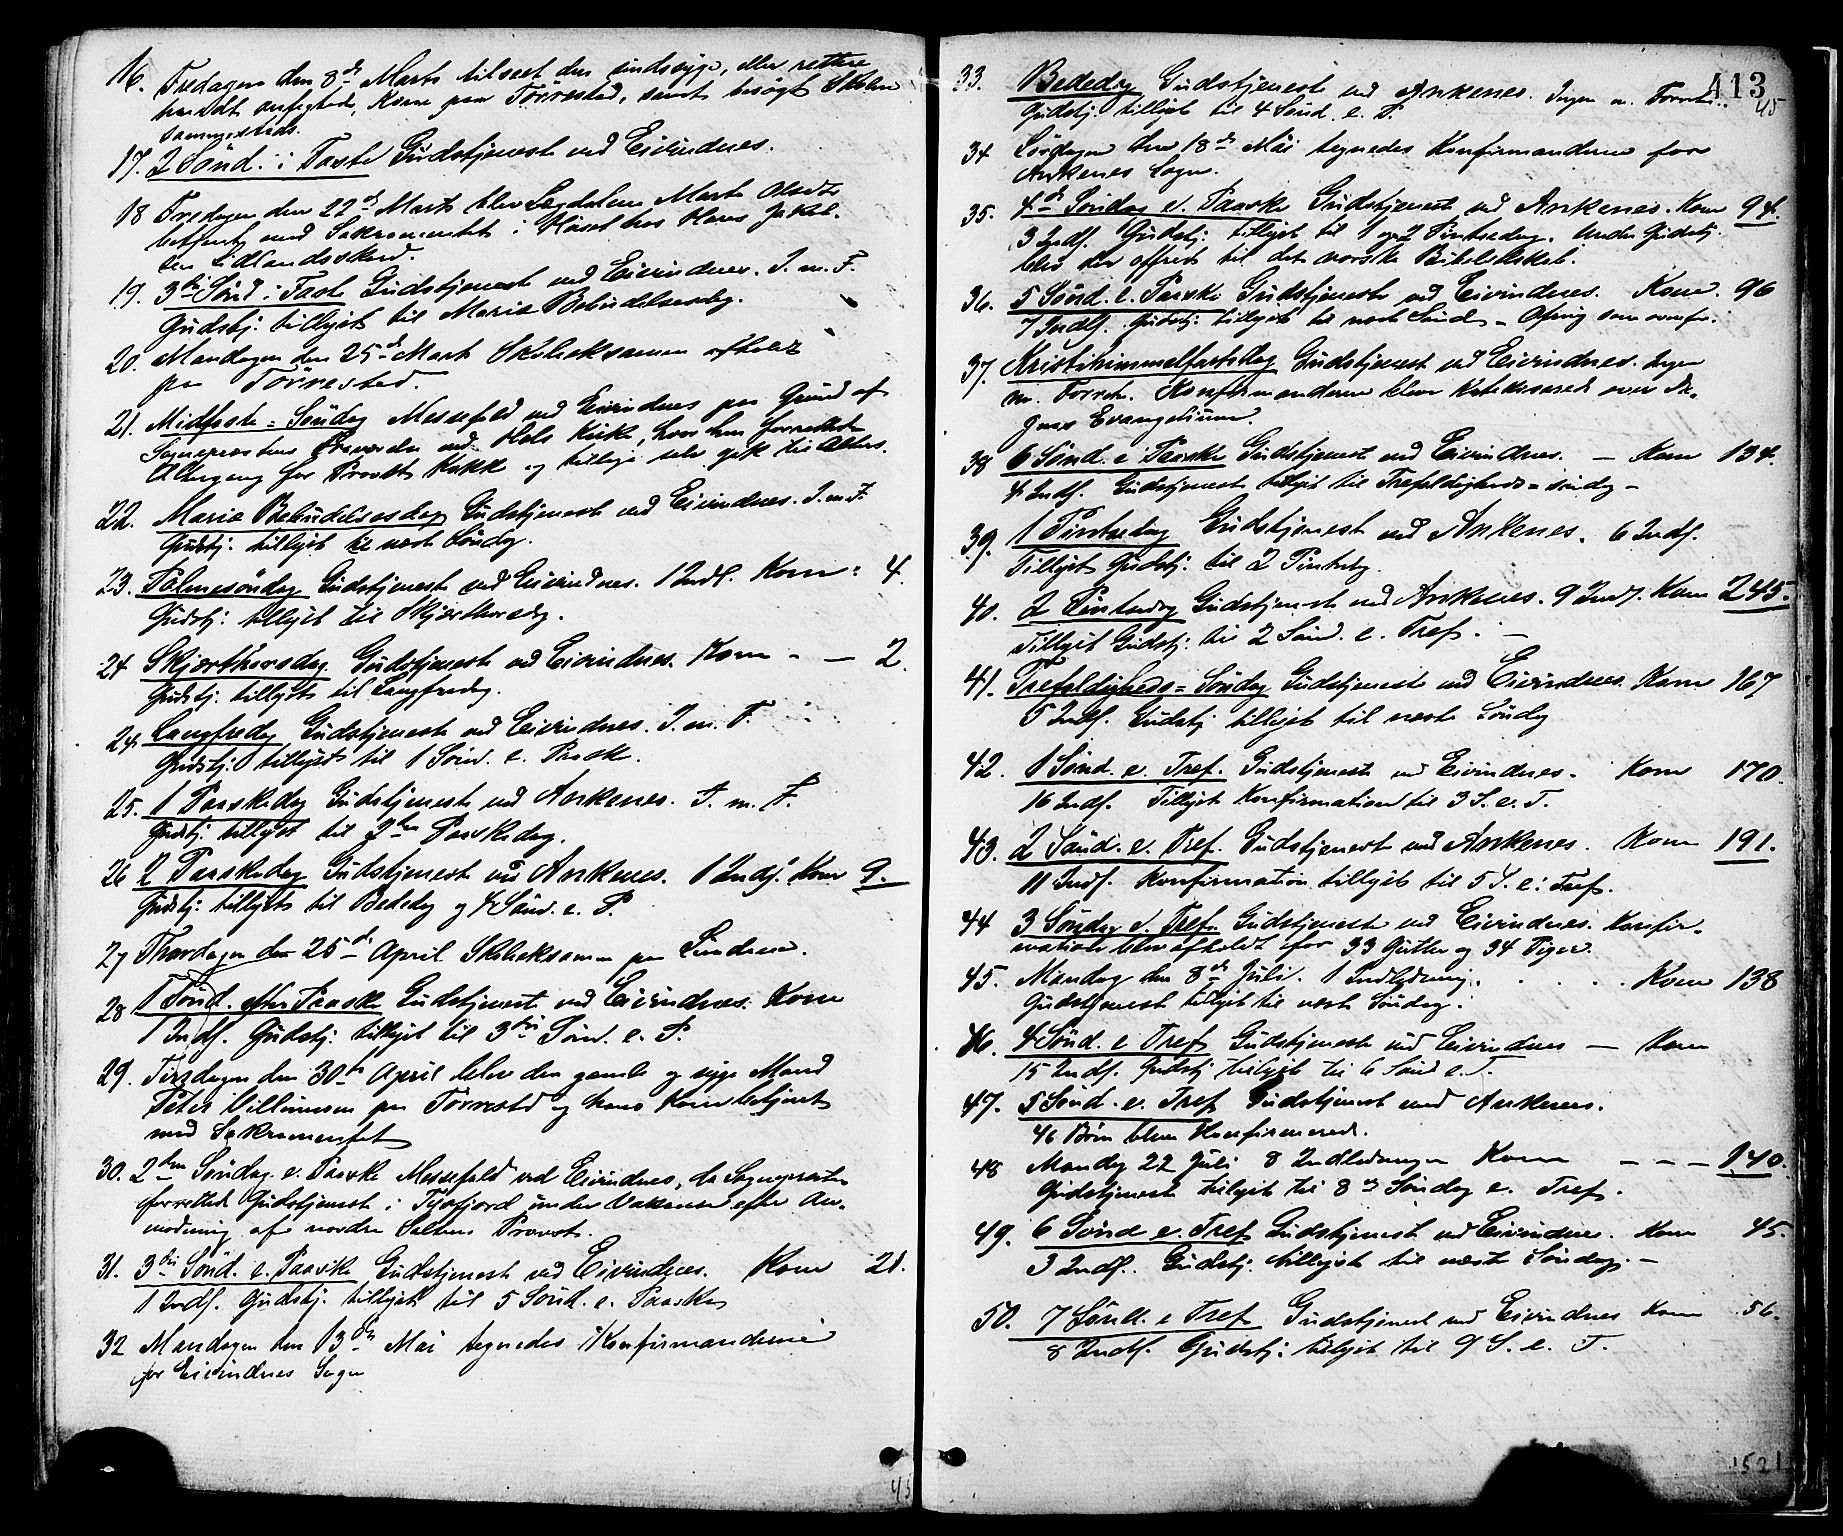 16. Fredagen den 8de Marts tilseet den sindssyge, eller rettere
haardt anfegtede, Kone paa Tørrestad, samt besøgt Skolen
sammesteds.
17. 2 Sønd. i Faste Gudstjeneste ved Eivindnes.
18 Fredagen den 22de Marts blev Marte
betjent med Sakramentet i hos Hans

19. 3die Sønd. i Fast Gudstjenest ved Eivindnes. I. m. F.
Gudstj. tillyst til Mariæ Bebudelsesdag.
20. Mandagen den 25de Mart Skoleeksamen afholdt
paa Tørrestad.
21. Midfaste = Søndag Messefald ved Eivindnes paa Grund af
Sognepræstens ved Hols Kirke, hvor han forrettede
Altergang for Provst og tillige selv gik til Alters.
22. Mariæ Bebudelsesdag Gudstjeneste ved Eivindnes. I. m. F.
Gudstj. tillyst til næst Søndag.
23. Palmesøndag Gudstjeneste ved Eivindnes. 1 Indl. Kom: 4.
Gudstj: tillyst til Skjærthorsdg.
24 Skjærthorsdag. Gudstjeneste ved Eivindnes. Kom - — 2.
Gudstj. tillyst til Langfredg.
24. Langfredg Gudstjeneste ved Eivindnes. I. m. F.
Gudstj: tillyst til 1 Sønd. e. Paask.
25. 1 Paaskedag Gudstjeneste ved Ankenes. I. m. F.
Gudstj: tillyst til 2den Paaskedag.
26 2 Paaskedag Gudstjenest ved Ankenes. 1 Indl. Kom 9.
Gudstj: tillyst til Bededg og 4 Sønd. e. P.
27 Thorsdagen den 25de April Skoleksamen paa
28 1 Sønd. efter Paaske Gudstjenest ved Eivindnes. Kom
1 Indl. Gudstj: tillyst til 3die Sønd. e. P.
29. Tirsdagen den 30te April blev den gamle og syge Mand
Peter paa Tørrestd og hans Kone betjent
med Sakramentet
30. 2den Søndag e. Paaske Messefald ved Eivindnes, da Sognepræsten
forrettede Gudstjenest i Tysfjord under Vakanse efter An-
modning af nordre Saltens Provst.
31. 3die Sønd. e. Paaske Gudstjenest ved Eivindnes. Kom 21.
1 Indl. Gudstj. tillyst til 5 Sønd. e. Paaske
32 Mandagen den 13de Mai tegnedes Konfirmanderne
for Eivindnes Sogn
45
113
45
33. Bededag Gudstjenest ved Ankenes. Ingen m. Forretn.
Gudstj. tillyst til 4 Sønd. e. P.
34 Lørdagen den 18de Mai tegnedes Konfirmanderne for
Ankenes Sogn.
35. 4de Søndag e. Paaske Gudstjenest ved Ankenes. Kom 94.
3 Indl. Gudstj. tillyst til 1 og 2 Pintsedag. Under Gudstj.
blev der offret til det norske Bibelselskab.
36. 5 Sønd. e. Paaske Gudstjeneste ved Eivindnes. Kom. 96
7 Indl. Gudstj: tillyst til næst Sønd - Ofring som ovenfor.
37. Kristihimmelfartsdag Gudstjenest ved Eivindnes. Ingen
m. Forretn. Konfirmanderne blev katekiserede over Da-
gens Evangelium.
38 6 Sønd. e Paaske Gudstjenest ved Eivindnes. — Kom 134.
4 Indl. Gudstjenest tillyst til Trefoldigheds = søndg -
39. 1 Pintsedag Gudstjenest ved Ankenes. 6 Indl.
Tillyst Gudstj. til 2 Pintsedg.
40. 2 Pintsedag Gudstjenest ved Ankenes. 9 Indl. Kom 245.
Tillyst Gudstj. til 2 Sønd. e. Tref. —
41. Trefoldigheds = Søndag Gudstjeneste ved Eivindnes. Kom 167
5 Indl. Gudstj tillyst til næste Søndg
42. 1 Sønd. e. Tref. Gudstjeneste ved Eivindnes. Kom 170.
16 Indl. Tillyst Konfirmation til 3 S. e. T.
43. 2 Sønd. e. Tref. Gudstjenest ved Ankenes. Kom 191.
11 Indl. Konfirmation tillyst til 5 S. e: Tref.
44 3 Søndag e. Tref. Gudstjeneste ved Eivindnes. Konfir-
mation blev afholdt for 33 Gutter og 34 Piger.
45. Mandag den 8de Juli. 1 Indledning. . . . . . Kom 138
Gudstjenest tillyst til næste Søndag.
46. 4 Sønd. e Tref Gudstjeneste ved Eivindnes — Kom
15 Indl. Gudstj tillyst til 6 Sønd e. T.
47. 5 Sønd. e. Tref Gudstjenest ved Ankenes.
46 Børn bleve Konfirmerede.
48 Mandag 22 Juli 8 Indledninger Kom — — — 140.
Gudstjeneste tillyst til 8de Søndag e. Tref.
49. 6 Sønd e. Tref Gudstjenest ved Eivindnes. Kom 45.
3 Indl. Gudstj. tillyst til næste Søndag. —
50. 7 Sønd. e Tref Gudstjenest ved Eivindnes Kom 56.
8 Indl. Gudstj: tillyst til 9 S. e. T.
1521